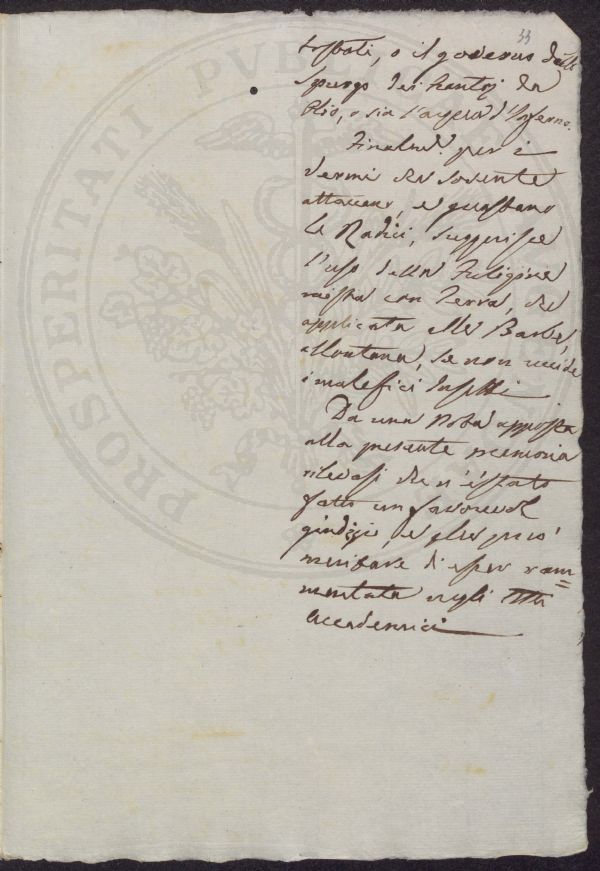 33
o il governo dello
spurgo dei Frantoj da
Olio, o sia l'acqua d'Inferno.
Finalmte per i
vermi che sovente
attaccano, e guastano
le Radici, suggerisce
l'uso della Fuligine
mista con Terra, che
applicata alle Barbe,
allontana, se non uccide
i malefici Insetti
Da una Nota apposta
alla presente memoria
rilevasi che n'è stato
fatto un favorevol
giudizio, e che può
meritare di esser ram=
mentata negli Atti
Accademici
PROSPERITATI PUBLICAE